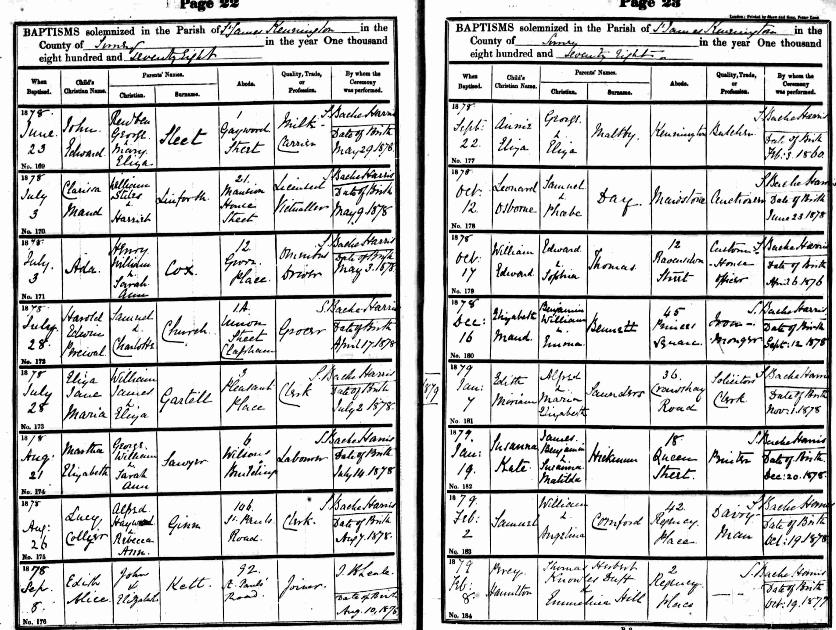 Page 22
BAPTISMS solemnized in the Parish of St James Kennington in the
County of Surrey in the year One thousand
eight hundred and Seventy Eight
When Baptised. Child's Christian Name. Parents' Names. Christian. Surname. Abode. Quality, Trade, or Profession. By whom the Ceremony was performed.
1878 June 23 John Edward Reuben George Mary Eliza Sleet 1 Gaywood Street Milk Carrier S. Bache Harris Date of Birth May 29 1878
No. 169
1878 July 3 Clarissa Maud William Stiles & Harriet Linforth 21 Mansion House Street Licensed Victualler S. Bache Harris Date of Birth May 9 1878
No. 170
1878 July 3 Ada Henry William & Sarah Ann Cox 12 Grove Place Omnibus Driver S. Bache Harris Date of Birth May 3 1878
No. 171
1878 July 28 Harold Edwin Percival Samuel & Charlotte Church 1A Union Street Clapham Grocer S. Bache Harris Date of Birth April 17 1878
No. 172
1878 July 28 Eliza Jane Maria William James & Eliza Gartell 3 Pleasant Place Clerk S. Bache Harris Date of Birth July 2 1878
No. 173
1878 Aug: 21 Martha Elizabeth George William & Sarah Ann Sawyer 6 Wilsons Buildings Labourer S. Bache Harris Date of Birth July 14 1878
No. 174
1878 Aug: 26 Lucy Collyer Alfred Hayward & Rebecca Ann Ginn 106 St. Pauls Road Clerk S. Bache Harris Date of Birth Aug 7 1878
No. 175
1878 Sep. 8 Edith Alice John & Elizabeth Kett 92 St. Pauls Road Joiner Date of Birth Aug. 10, 1878
No. 176
Page 23
BAPTISMS solemnized in the Parish of St James Kennington in the
County of Surrey in the year One thousand
eight hundred and Seventy Eight
When Baptised. Child's Christian Name. Parents' Names. Christian. Surname. Abode. Quality, Trade, or Profession. By whom the Ceremony was performed.
1878 Sept: 22 Annie Eliza George & Eliza Maltby Kennington Butcher S. Bache Harris Date of Birth Feb: 3. 1860
No. 177
1878 Oct: 12 Leonard Osborne Samuel & Phoebe Day Maidstone Auctioneer S. Bache Harris Date of Birth June 23 1878
No. 178
1878 Oct: 17 William Edward Edward & Sophia Thomas 12 Ravensdon Street Custom House Officer S. Bache Harris Date of Birth April 26 1876
No. 179
1878 Dec: 16 Elizabeth Maud Benjamin William & Emma Bennett 45 Princes Square Iron-monger S. Bache Harris Date of Birth Sept: 12 1878
No. 180
1879
1879 Jan: 7 Edith Miriam Alfred Maria Elizabeth Saunders 36 Crawshay Road Solicitors Clerk S. Bache Harris Date of Birth Nov: 1 1878
No. 181
1879 Jan: 19 Susanna Kate James Benjamin & Susanna Matilda Hickman 18 Queen Street Printer S. Bache Harris Date of Birth Dec: 20. 1878
No. 182
1879 Feb: 2 Samuel William & Angelina Cornford 42 Regency Place Dairy Man S. Bache Harris Date of Birth Oct: 19 1878
No. 183
1879 Feb: 8 Percy Hamilton Thomas Herbert Knowles & Emmelina Hill 2 Regency Place S. Bache Harris Date of Birth Oct: 19 1877
No. 184